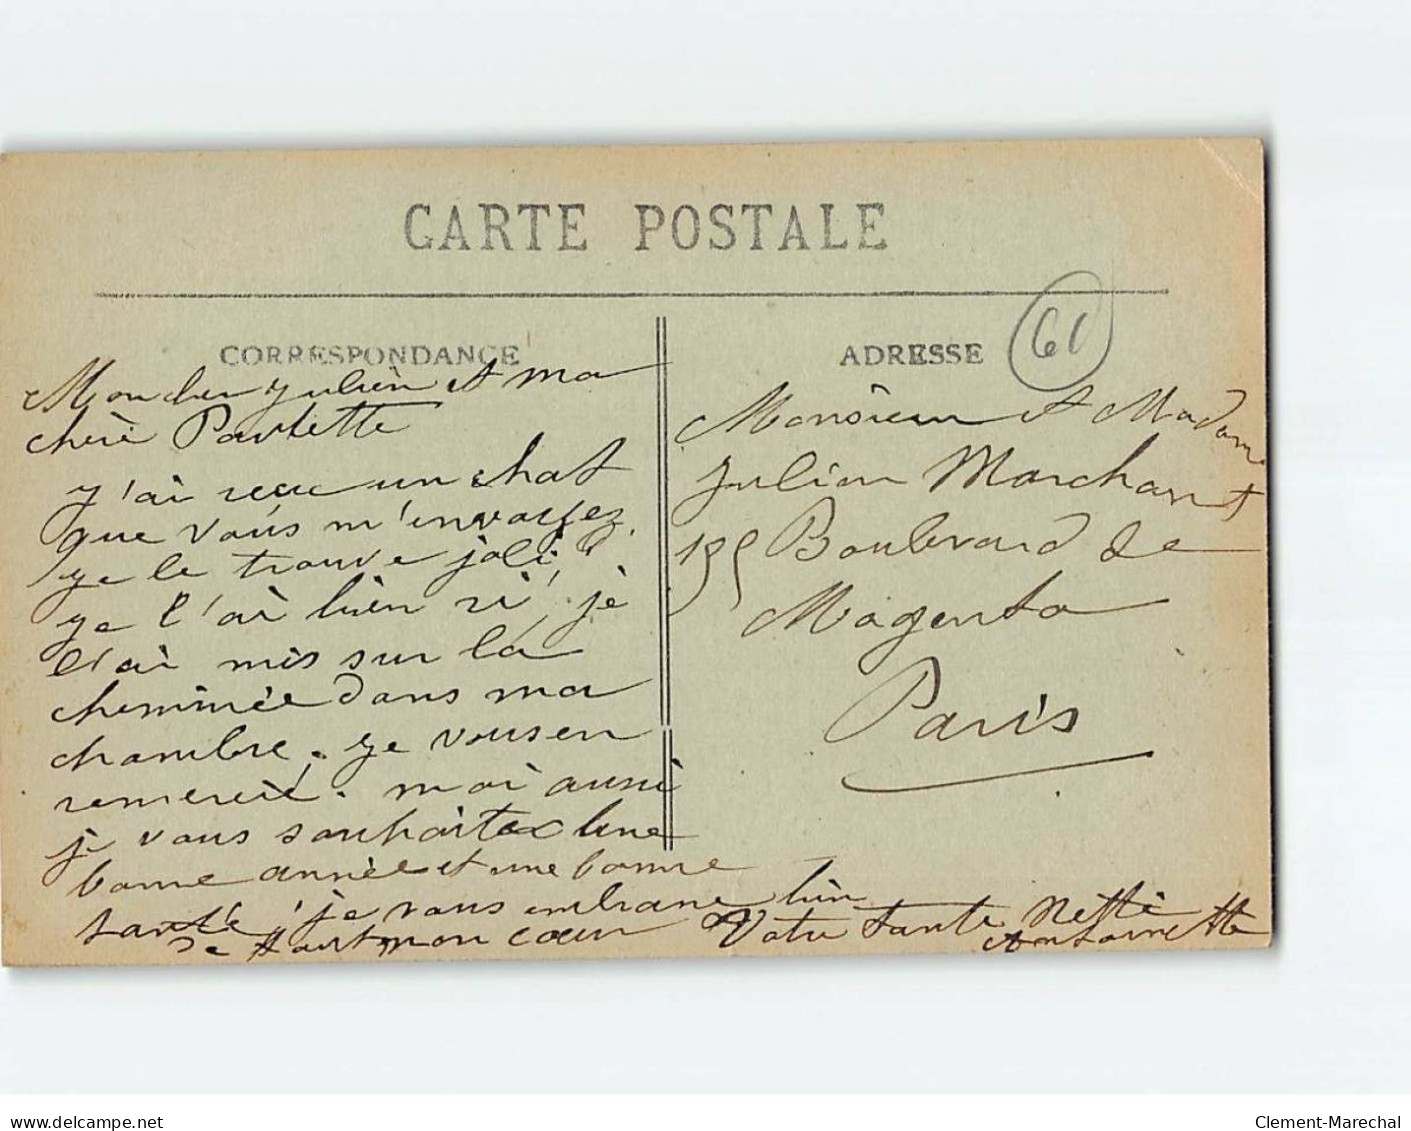 CARTE POSTALE
CORRESPONDANCE
Mon cher Julien et ma
chère Paulette
J'ai reçu un chat
que vous m'envoyez,
je le trouve joli,
je l'ai bien ri, je
l'ai mis sur la
cheminée dans ma
chambre. je vous en
remercie. moi aussi
je vous souhaite une
bonne année et une bonne
santé, je vous embrasse bien
de tout mon cœur
Votre tante Nette
Antoinette
ADRESSE
61
Monsieur et Madame
Julien Marchant
Boulevard de
Magenta
Paris
delcampe.net
Clement-Marechal